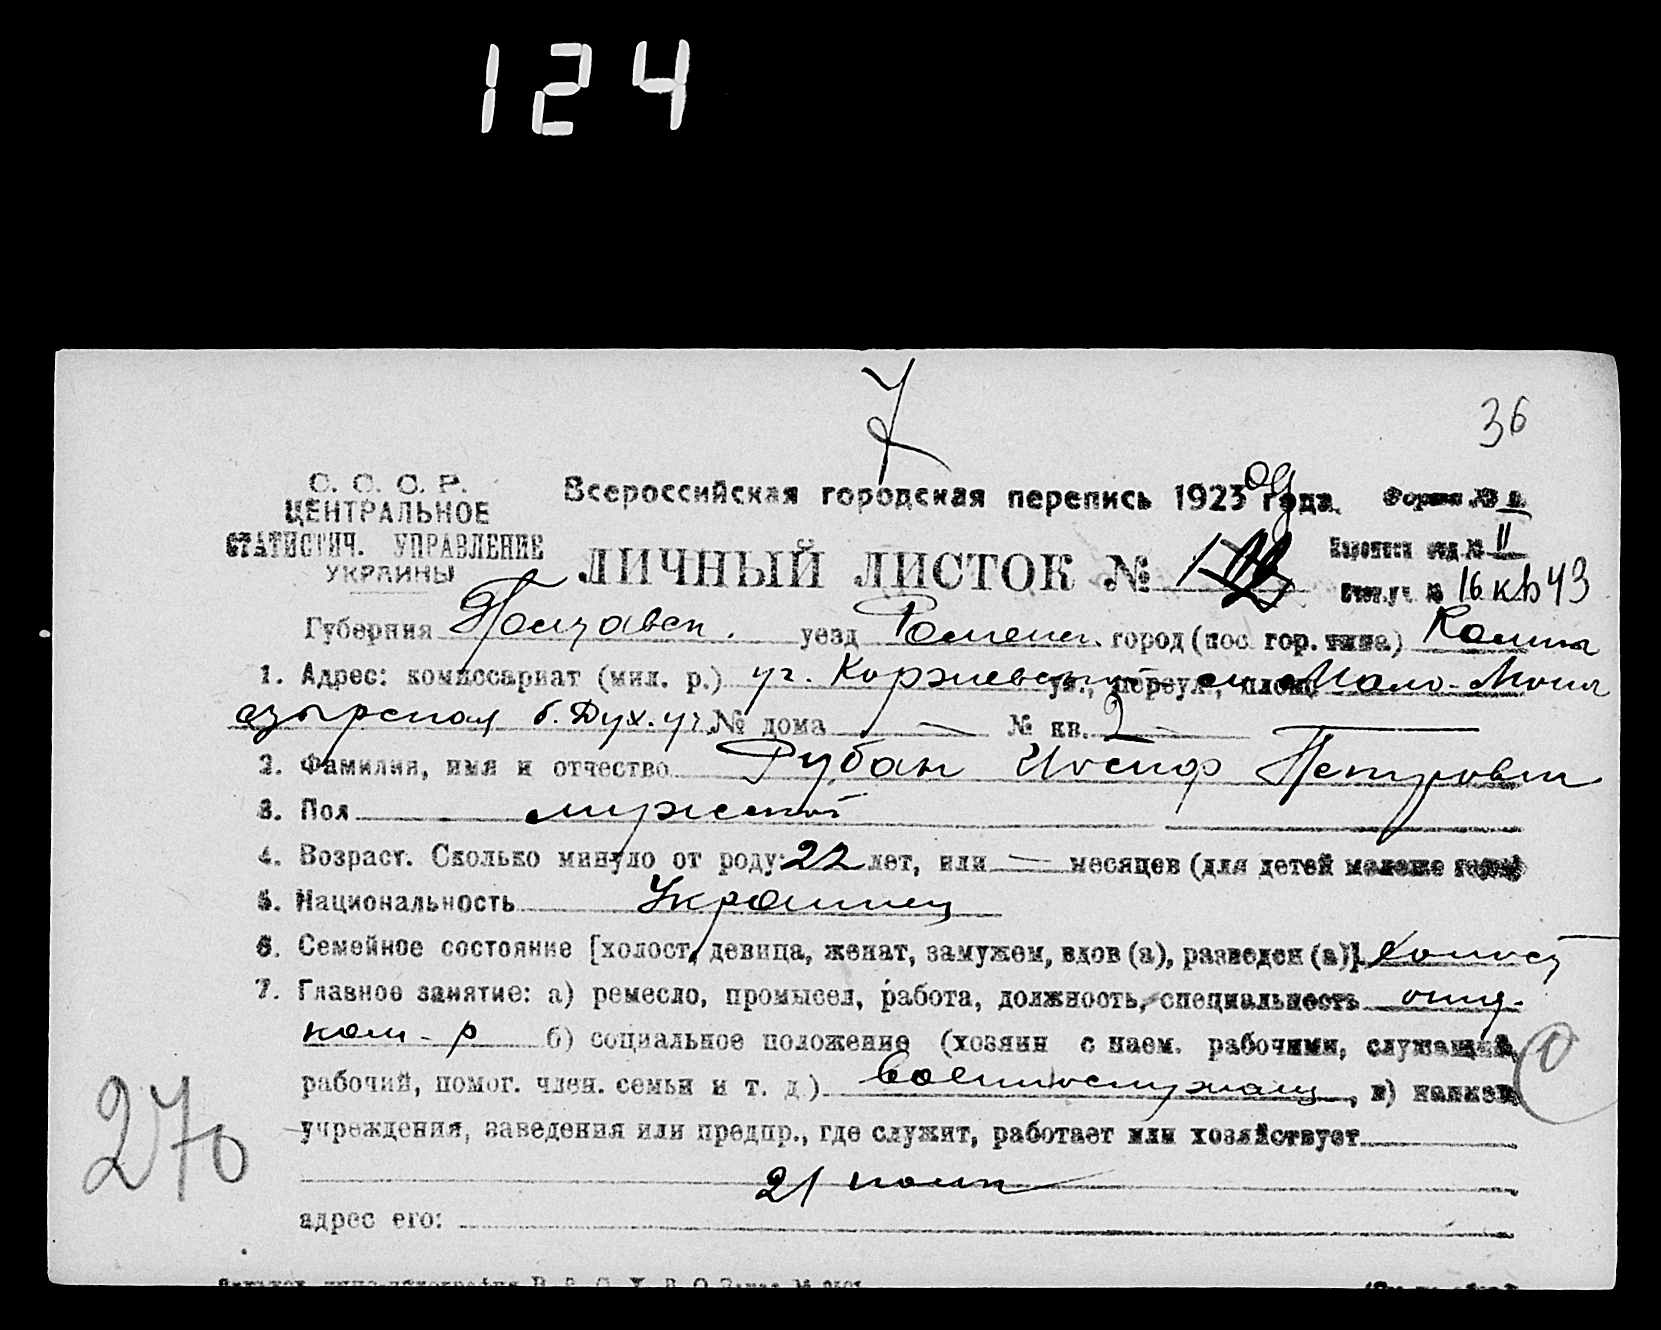 124
7
36
С. С. С. Р.
ЦЕНТРАЛЬНОЕ
СТАТИСТИЧ. УПРАВЛЕНИЕ
УКРАИНЫ
Всероссийская городская перепись 1923 года. Форма №
ЛИЧНЫЙ ЛИСТОК №
отд. № II
Счет. уч. № 16 кв 43
Губерния Полтавск. уезд Роменск. город (пос. гор. типа) Ромны
1. Адрес: комиссариат (мил. р.) уг. Коржевской ул., переул., площ. Мало-Мона
стырской б. Дух. уч. № дома — № кв. 2 —
2. Фамилия, имя и отчество Рубан Иосиф Петрович
3. Пол мужской
4. Возраст. Сколько минуло от роду: 22 лет, или — месяцев (для детей моложе года)
5. Национальность Украинец
6. Семейное состояние [холост, девица, женат, замужем, вдов (а), разведен (а)]. холост
7. Главное занятие: а) ремесло, промысел, работа, должность, специальность
ком-р б) социальное положение (хозяин с наем. рабочими, служащий,
рабочий, помог. член. семьи и т. д.) Военнослужащ, в) назван.
учреждения, заведения или предпр., где служит, работает или хозяйствует
21 полк
адрес его:
270